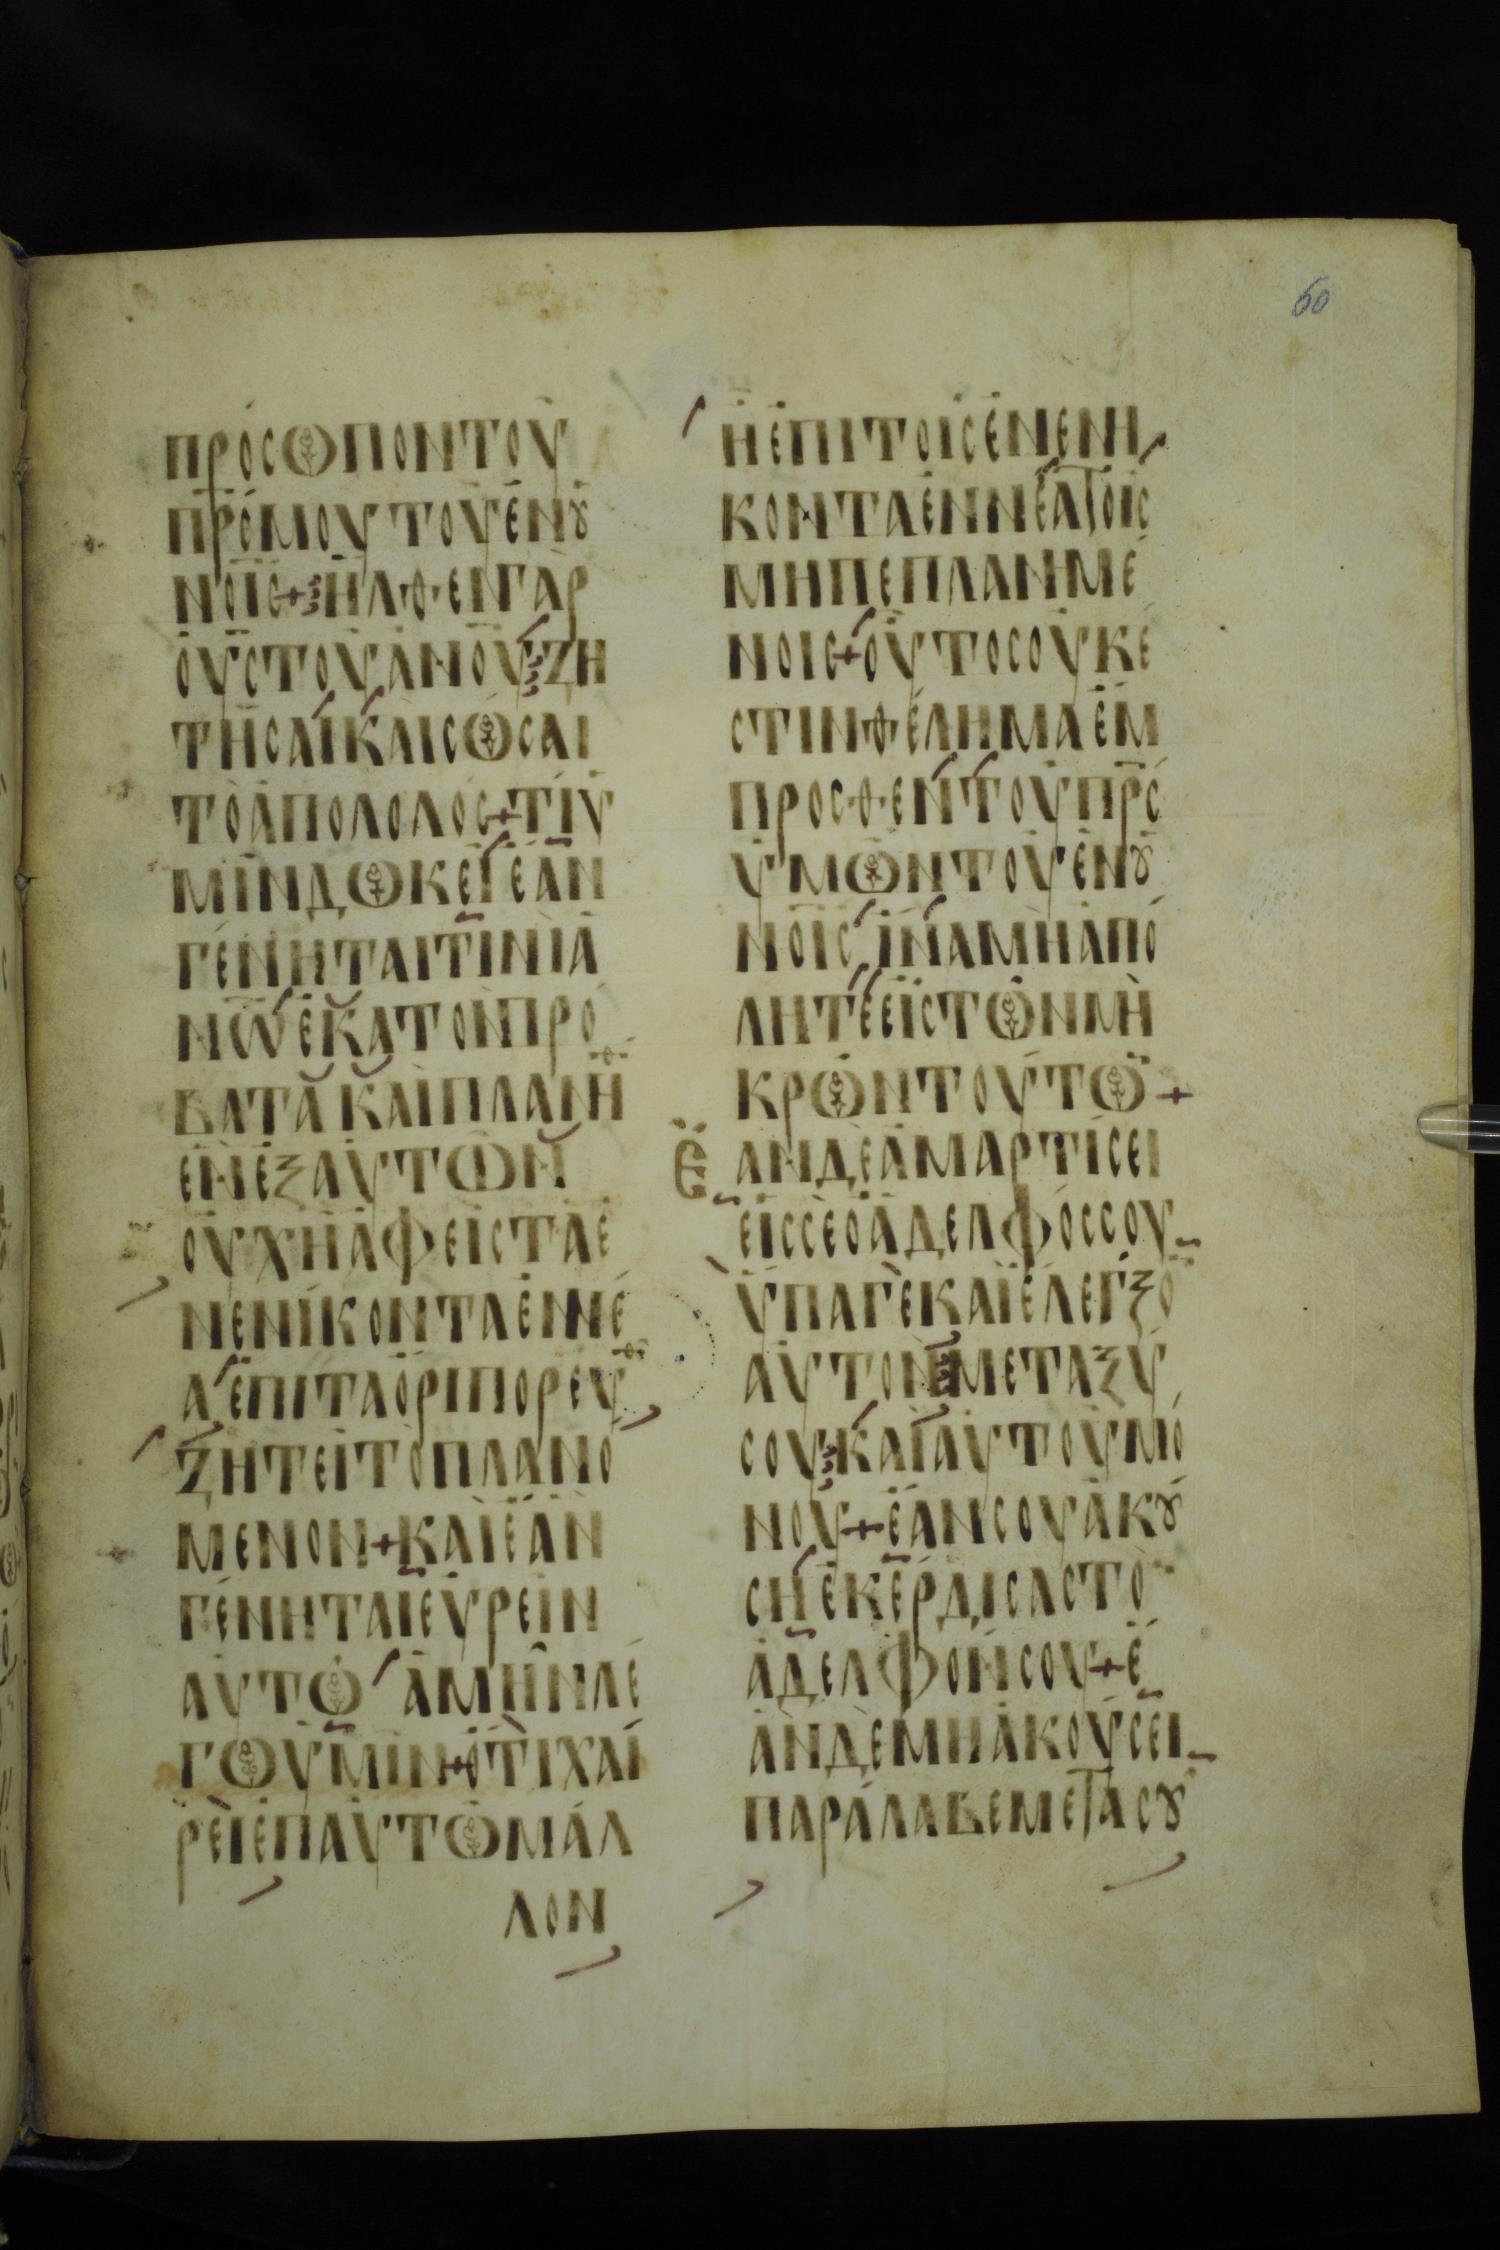 60
ΠΡΟCΩΠΟΝΤΟΥ
ΠΡCΜΟΥΤΟΥΕΝȢ
ΝΟΙC+ΗΛΘΕΝΓΑΡ
ΟΥCΤΟΥΑΝΟΥΖΗ
ΤΗCΑΙΚΑΙCΩCΑΙ
ΤΟΑΠΟΛΟΛΟC+ΤΙΥ
ΜΙΝΔΩΚΕΙΕΑΝ
ΓΕΝΗΤΑΙΤΙΝΙΑ
ΝΩΕΚΑΤΟΝΠΡΟ
ΒΑΤΑΚΑΙΠΛΑΝΗΘ
ΕΝΕΞΑΥΤΩΝ.
ΟΥΧΗΑΦΕΙCΤΑΕ
ΝΕΝΙΚΟΝΤΑΕΝΝΕ
ΑΕΠΙΤΑΟΡΙΠΟΡΕΥΘ
ΖΗΤΕΙΤΟΠΛΑΝΟ
ΜΕΝΟΝ+ΚΑΙΕΑΝ
ΓΕΝΗΤΑΙΕΥΡΕΙΝ
ΑΥΤΩΑΜΗΝΛΕ
ΓΩΥΜΙΝ+ΟΤΙΧΑΙ
ΡΕΙΕΠΑΥΤΩΜΑΛ
ΛΟΝ
ΗΕΠΙΤΟΙCΕΝΕΝΗ
ΚΟΝΤΑΕΝΝΕΑΤΟΙC
ΜΗΠΕΠΛΑΝΗΜΕ
ΝΟΙC+ΟΥΤΟCΟΥΚΕ
CΤΙΝΘΕΛΗΜΑΕΜ
ΠΡΟCΘΕΝΤΟΥΠΡC
ΥΜΩΝΤΟΥΕΝȢ
ΝΟΙCΙΝΑΜΗΑΠΟ
ΛΗΤΕΕΙCΤΩΝΜΗ
ΚΡΩΝΤΟΥΤΩ+
ΕΑΝΔΕΑΜΑΡΤΙCΕΙ
ΕΙCCΕΟΑΔΕΛΦΟCCΟΥ
ΥΠΑΓΕΚΑΙΕΛΕΓΞΟ
ΑΥΤΟΝΜΕΤΑΞΥ
CΟΥΚΑΙΑΥΤΟΥΜΟ
ΝΟΥ+ΕΑΝCΟΥΑΚȢ
CΗΕΚΕΡΔΙCΑCΤΟ
ΑΔΕΛΦΟΝCΟΥ+Ε
ΑΝΔΕΜΗΑΚΟΥCΕΙ
ΠΑΡΑΛΑΒΕΜΕΤΑCȢ